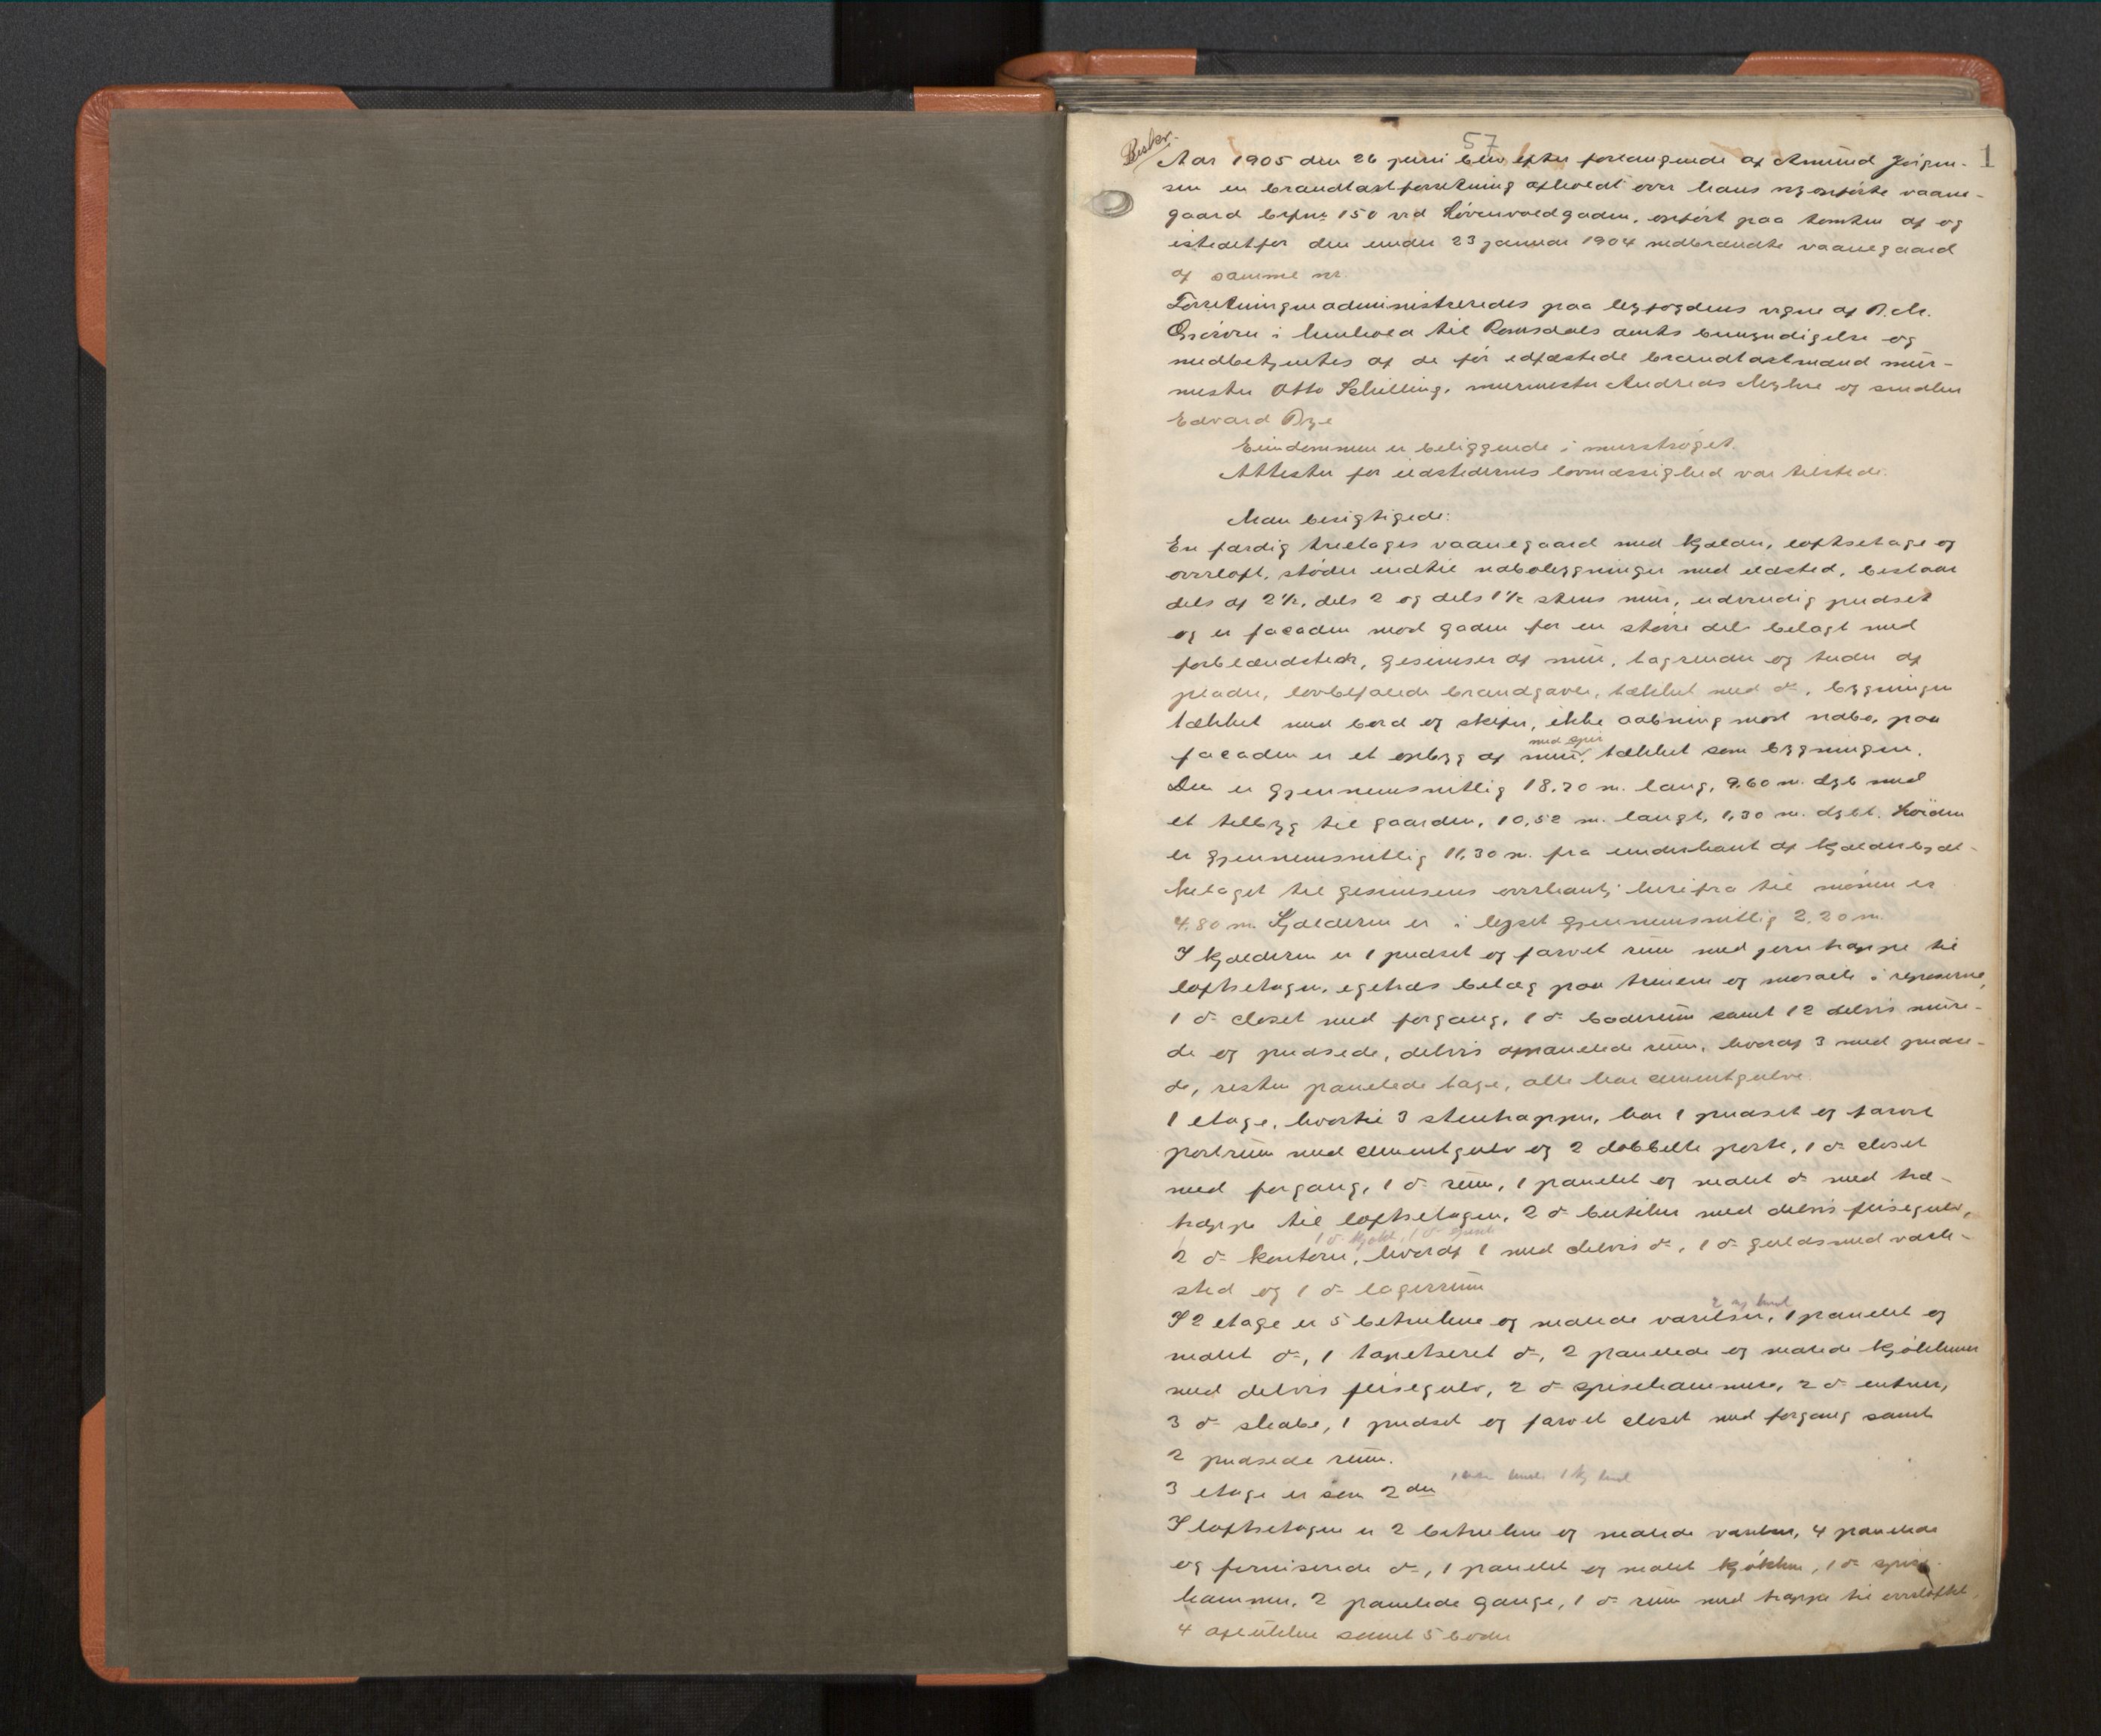 Beskr.
57
1
Aar 1905 den 26 juni blev efter forlangende af Amund Jørgen-
sen en brandtaxtforretning afholdt over hans nyopførte vaane-
gaard bryn 150 ved Løvenvoldgaden, opført paa tomten af og
istedetfor den under 23 januar 1904 nedbrændte vaanegaard
af samme nr.
Forretningen administreredes paa byfogdens vegne af
i henhold til Romsdals amts bemyndigelse og
medbetjentes af de før edfæstede brandtaxtmænd mur-
mester Otto Schilling, murmester Andreas Myhre og snedker
Edvard Bye
Eiendommen er beliggende i murstrøget.
Attester for ildstedernes lovmæssighed var tilstede.
Man besigtigede:
En færdig treetages vaanegaard med kjælder, loftsetage og
overloft, støder indtil nabobygninger med ildsted, bestaar
dels af 2½, dels 2 og dels 1½ stens mur, udvendig pudset
og er facaden mod gaden for en større del belagt med
forblændsten, gesimser af mur, tagrender og tuder af
plader, lovbefalede brandgavle, tækket med do, bygningen
tækket med bord og skifer, ikke aabning mod nabo, paa
facaden er et opbyg af mur, med spir tækket som bygningen.
Den er gjennemsnitlig 18.70 m. lang, 9.60 m. dyb med
et tilbyg til gaarden, 10,52 m. langt, 1,30 m. dybt. Høiden
er gjennemsnitlig 11.30 m. fra underkant af kjælderbjæl-
kelaget til gesimsens overkant; herifra til mønen er
4.80 m. Kjælderen er i lyset gjennemsnitlig 2.20 m.
I kjælderen er 1 pudset og farvet rum med jerntrappe til
loftsetagen, egetræs belæg paa trinene og mosaik i reposerne,
1 do closet med forgang, 1 do baderum samt 12 delvis mure-
de og pudsede, delvis afpanelede rum, hvoraf 3 med pudse-
de, resten panelede tage, alle har cementgulve.
1 etage, hvortil 3 stentrapper, har 1 pudset og farvet
portrum med cementgulv og 2 dobbelte porte, 1 do closet
med forgang, 1 do rum, 1 panelet og malet do med træ-
trappe til loftsetagen, 2 do butiker med delvis flisegulv,
1 do kjøk, 1 do spisek
2 do kontorer, hvoraf 1 med delvis do, 1 do guldsmed værk-
sted og 1 do lagerrum
I 2 etage er 5 betrukne og malede værelser, 1 panelet og
malet do, 1 tapetseret do, 2 panelede og malede kjøkkener
med delvis flisegulv, 2 do spisekammere, 2 do entreer,
3 do skabe, 1 pudset og farvet closet med forgang samt
2 pudsede rum.
3 etage er som 2den
I loftsetagen er 2 betrukne og malede værelser, 4 panelede
og ferniserede do, 1 panelet og malet kjøkken, 1 do spise-
kammer, 2 panelede gange, 1 do rum med trappe til overloftet,
4 aflukker samt 5 boder